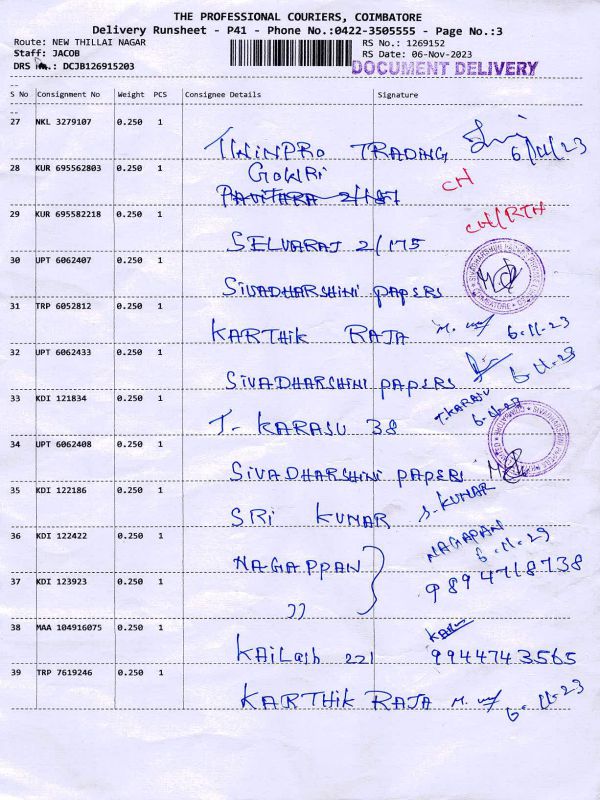 THE PROFESSIONAL COURIERS, COIMBATORE
Delivery Runsheet - P41 - Phone No.:0422-3505555 - Page No.:3
Route: NEW THILLAI NAGAR
RS No.: 1269152
Staff: JACOB
RS Date: 06-Nov-2023
DRS No.: DCJB126915203
DOCUMENT DELIVERY
S No Consignment No Weight PCS Consignee Details Signature
27 NKL 3279107 0.250 1
TWINPRO TRADING 6/11/23
28 KUR 695562803 0.250 1
GOWRI
PAVITHRA 2/187 CH
29 KUR 695582218 0.250 1
SELVARAJ 2/175 CH/RTH
30 UPT 6062407 0.250 1
SIVADHARSHINI PAPERS
31 TRP 6052812 0.250 1
KARTHIK RAJA M. 6-11-23
32 UPT 6062433 0.250 1
SIVADHARSHINI PAPERS 6-11-23
33 KDI 121834 0.250 1
T. KARASU 38 T.KARASU
34 UPT 6062408 0.250 1
SIVADHARSHINI PAPERS
35 KDI 122186 0.250 1
SRI KUNAR S-KUNAR
36 KDI 122422 0.250 1
NAGAPPAN NAGAPAN 6-11-23
37 KDI 123923 0.250 1
)) 9894718738
38 MAA 104916075 0.250 1
KAILASH 221 9944743565
39 TRP 7619246 0.250 1
KARTHIK RAJA M. 6-11-23